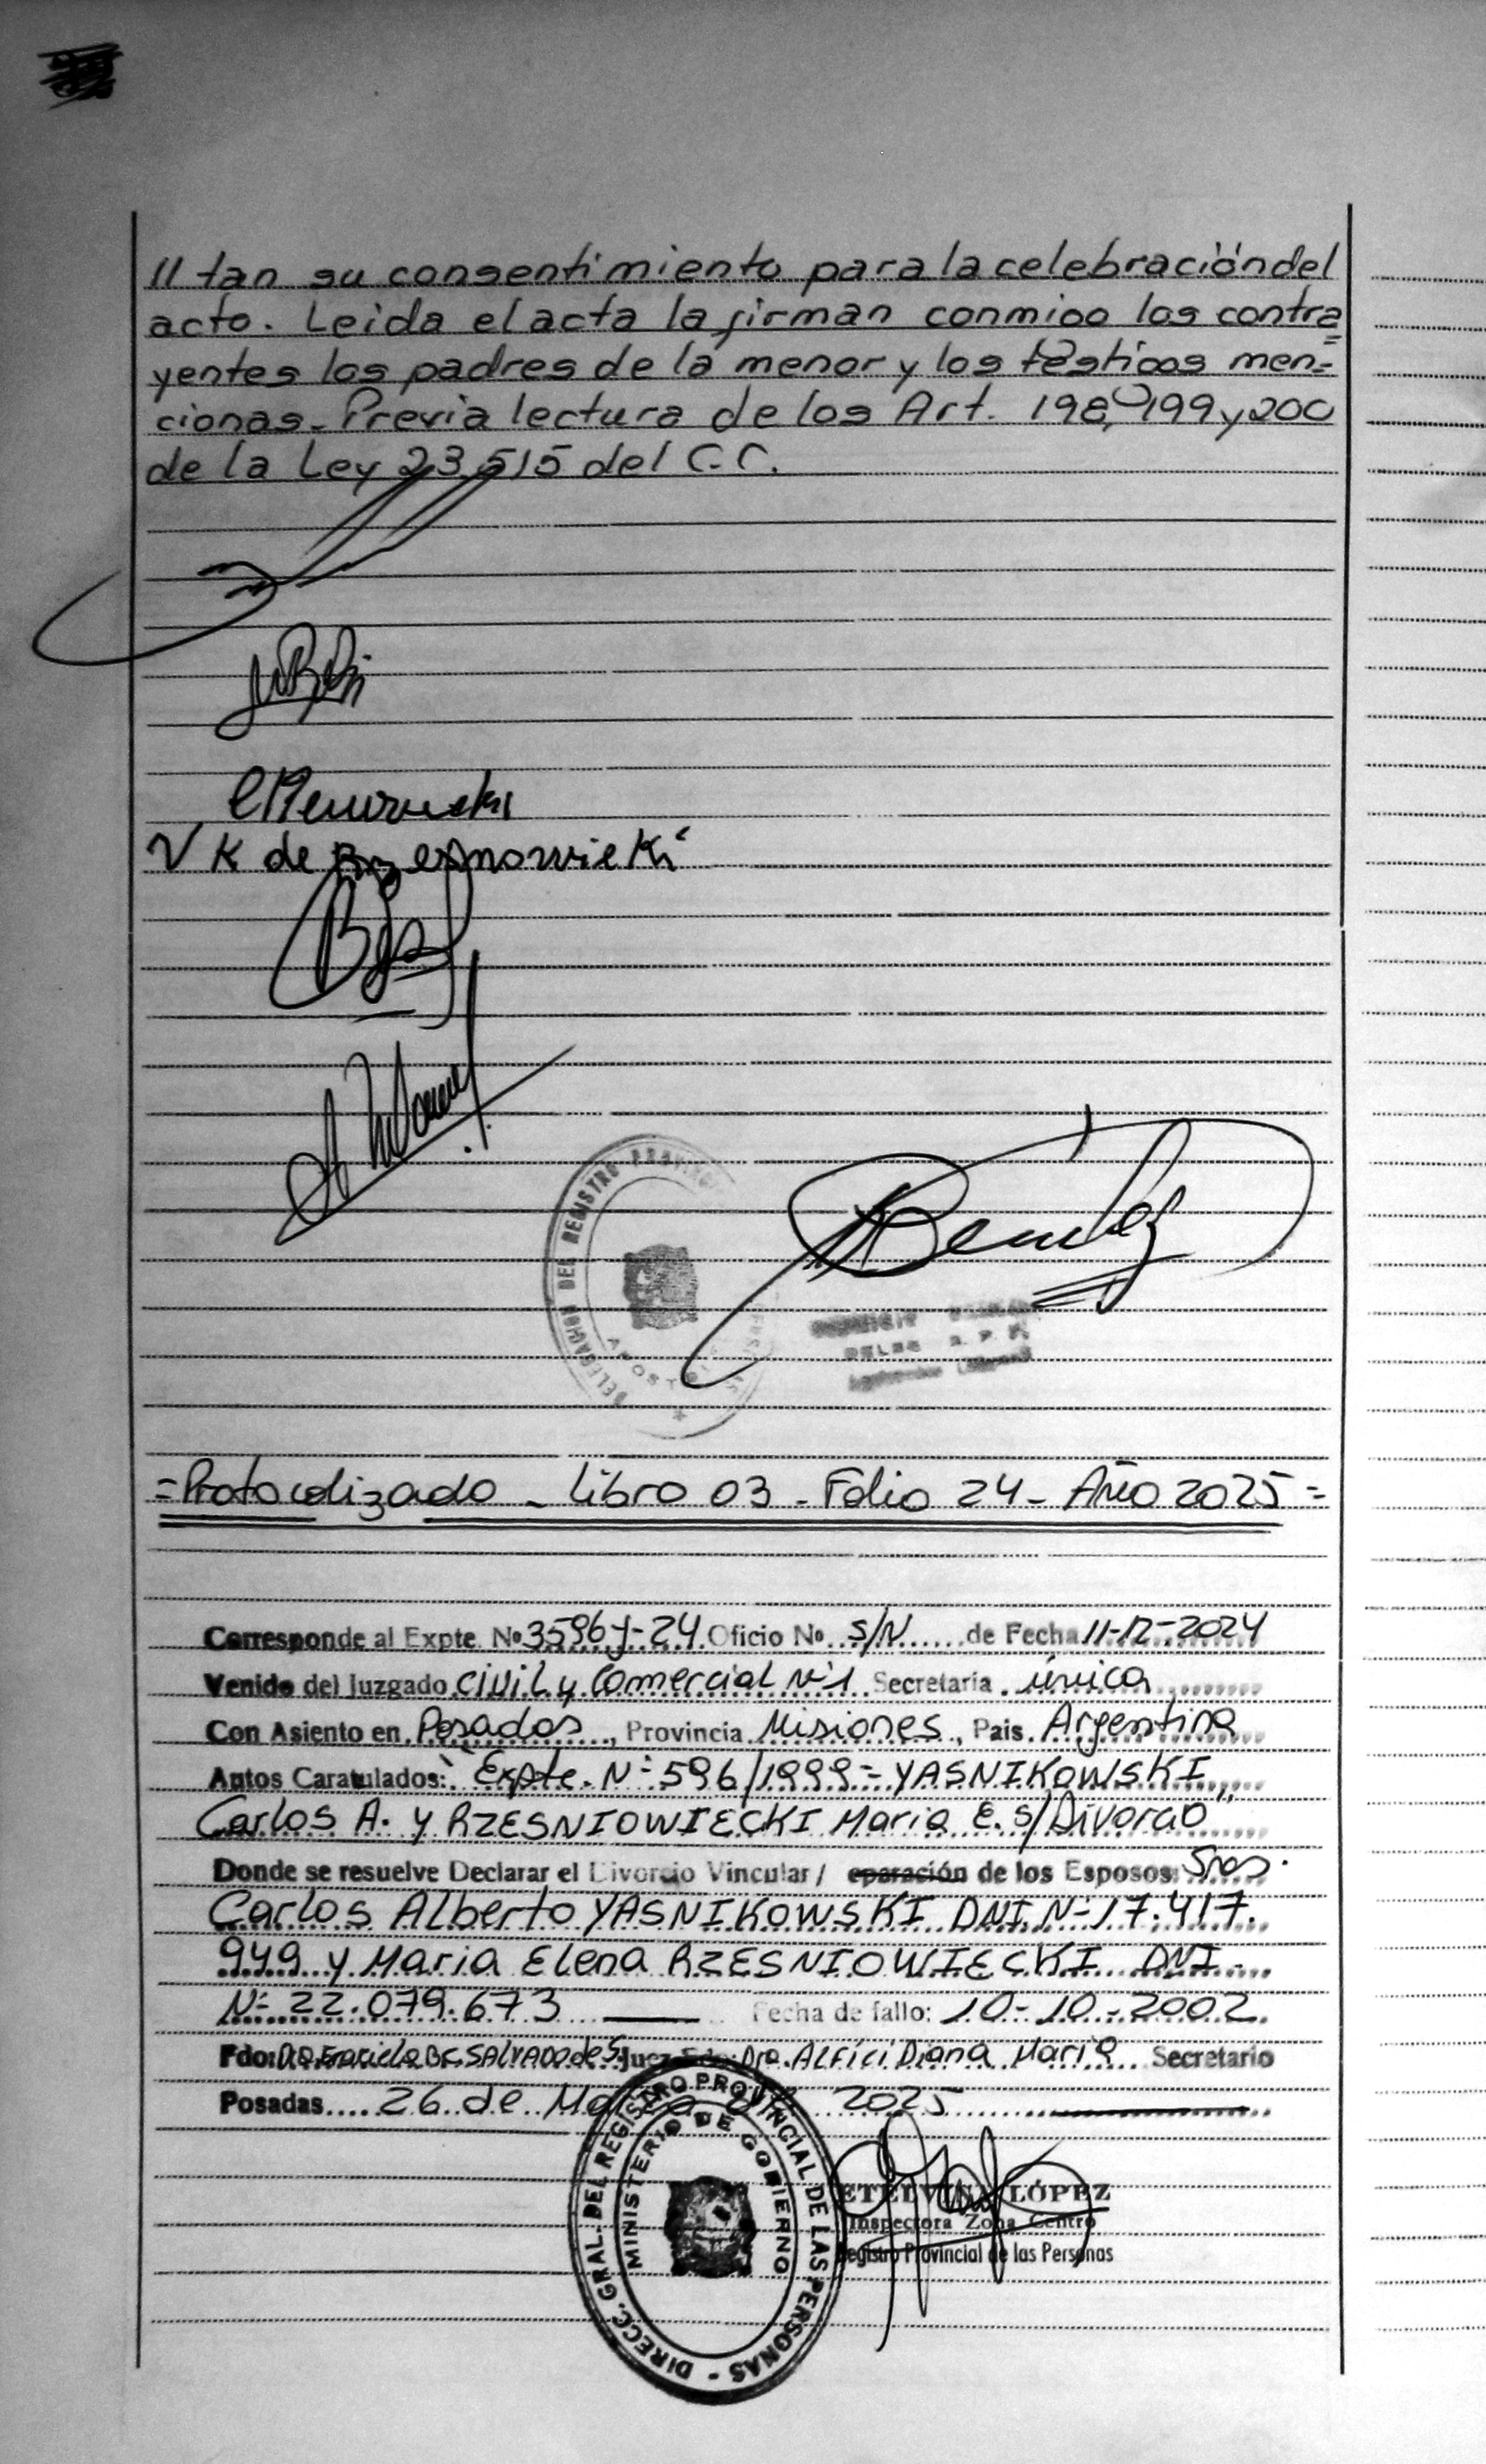 // tan su consentimiento para la celebración del
acto. Leida el acta la firman conmigo los contra
yentes los padres de la menor y los testigos men=
cionas. Previa lectura de los Art. 198, 199 y 200
de la Ley 23.515 del C.C.
V K de
DELEGACION DEL REGISTRO PROVINCIAL
=Protocolizado - Libro 03 - Folio 24 - Año 2025=
Corresponde al Expte. Nº 3596 Oficio Nº S/N de Fecha 11-12-2024
Venido del Juzgado Civil y Comercial Nº 1 Secretaria única
Con Asiento en Posadas, Provincia Misiones, Pais Argentina
Autos Caratulados: "Expte. Nº 596/1999 - YASNIKOWSKI
Carlos A. y RZESNIOWIECKI Maria E. s/Divorcio"
Donde se resuelve Declarar el Divorcio Vincular / eparación de los Esposos: Sres.
Carlos Alberto YASNIKOWSKI DNI Nº 17.417.
949 y Maria Elena RZESNIOWIECKI DNI
Nº 22.079.673 Fecha de fallo: 10-10-2002.
Fdo: SALVADO de Juez Fdo: Dra. ALFICI Diana Maria Secretario
Posadas 26 de 2025
DIRECC. GRAL. DEL REGISTRO PROVINCIAL DE LAS PERSONAS -
MINISTERIO DE GOBIERNO
ETELVINA LÓPEZ
Inspectora Zona Centro
Registro Provincial de las Personas